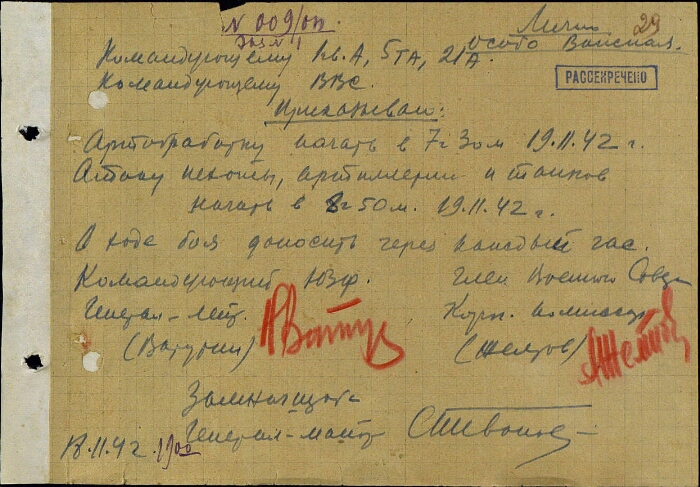 № 009/оп.
экз № 1
Лично 29
Особо Важная.
Командующему 1 гв. А, 5 ТА, 21 А
Командующему ВВС.
РАССЕКРЕЧЕНО
Приказываю:
Артобработку начать в 7 ч 30 м 19.11.42 г.
Атаку пехоты, артиллерии и танков
начать в 8 ч 50 м. 19.11.42 г.
В ходе боя доносить через каждый час.
Командующий ЮЗФ. Член Военного Совета
Генерал-лейт. Корп. комиссар
(Ватутин) НВатут (Желтов) АЖелтов
Замначштаба
Генерал-майор
18.11.42. 1900